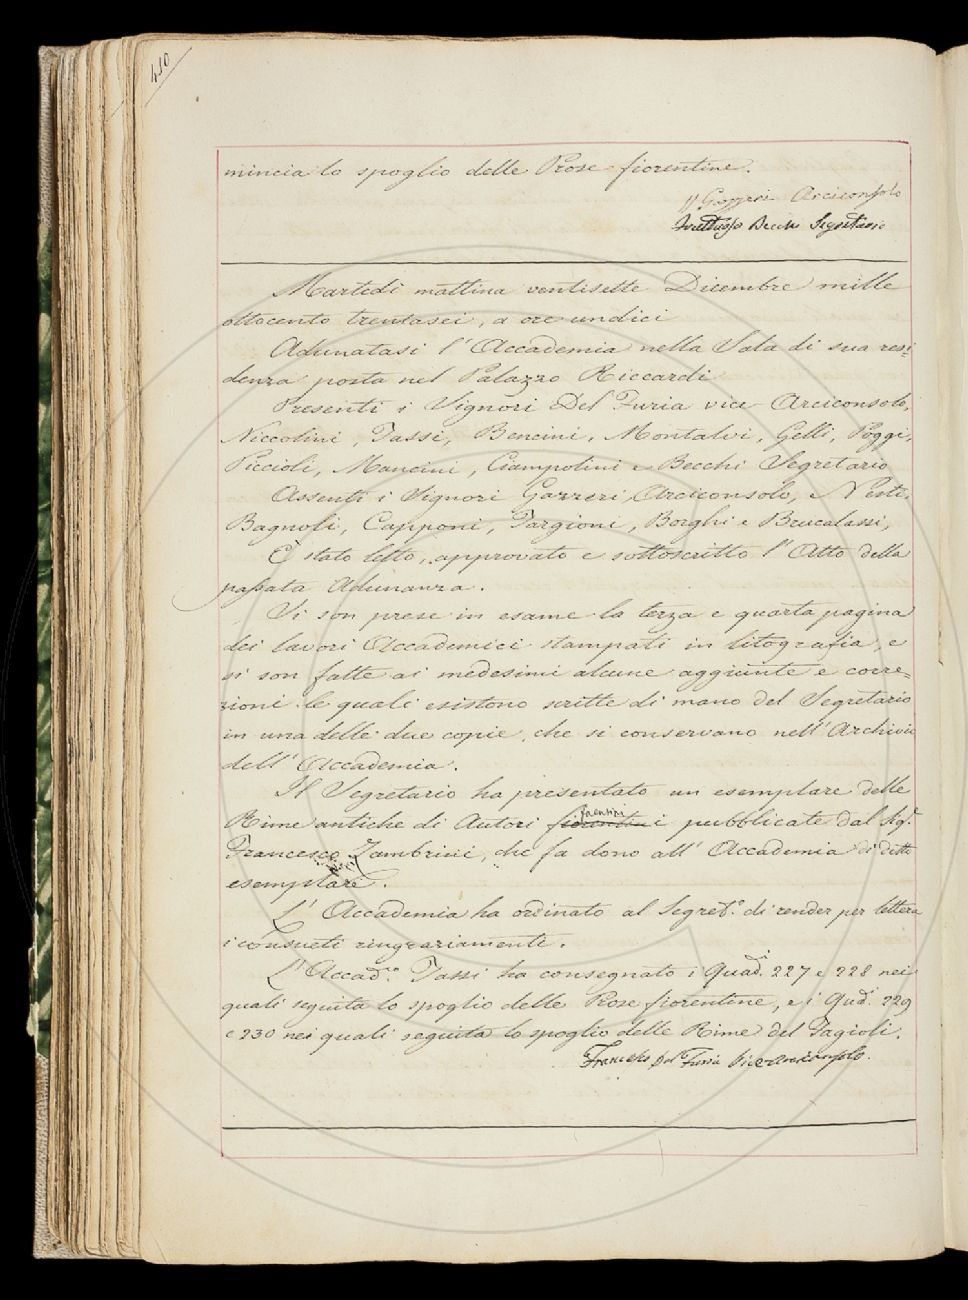 410
mincia lo spoglio delle Prose fiorentine.
Gazzeri Arciconsolo
Fruttuoso Becchi Segretario
Martedì mattina ventisette Dicembre mille
ottocento trentasei, a ore undici
Adunatasi l'Accademia nella Sala di sua resi=
denza posta nel Palazzo Riccardi
Presenti i Signori Del Furia vice Arciconsolo,
Niccolini, Tassi, Bencini, Montalvi, Gelli, Poggi,
Piccioli, Mancini, Ciampolini e Becchi Segretario
Assenti i Signori Gazzeri Arciconsolo, e Nesti,
Bagnoli, Capponi, Targioni, Borghi e Brucalassi,
È stato letto, approvato e sottoscritto l'Atto della
passata Adunanza.
Si son prese in esame la terza e quarta pagina
dei lavori Accademici stampati in litografia, e
si son fatte ai medesimi alcune aggiunte e corre=
zioni le quali esistono scritte di mano del Segretario
in una delle due copie, che si conservano nell'Archivio
dell'Accademia.
Il Segretario ha presentato un esemplare delle
Rime antiche di Autori fiorentini faentini pubblicate dal Sig.r
Francesco Zambrini, che fa dono all'Accademia di detto
esemplare.
L'Accademia ha ordinato al Segret.o di render per lettera
i consueti ringraziamenti.
L'Accad.co Tassi ha consegnato i Quad.i 227 e 228 nei
quali seguita lo spoglio delle Prose fiorentine, e i Quad.i 229
e 230 nei quali seguita lo spoglio delle Rime del Fagioli.
Francesco Del Furia Vice Arciconsolo.